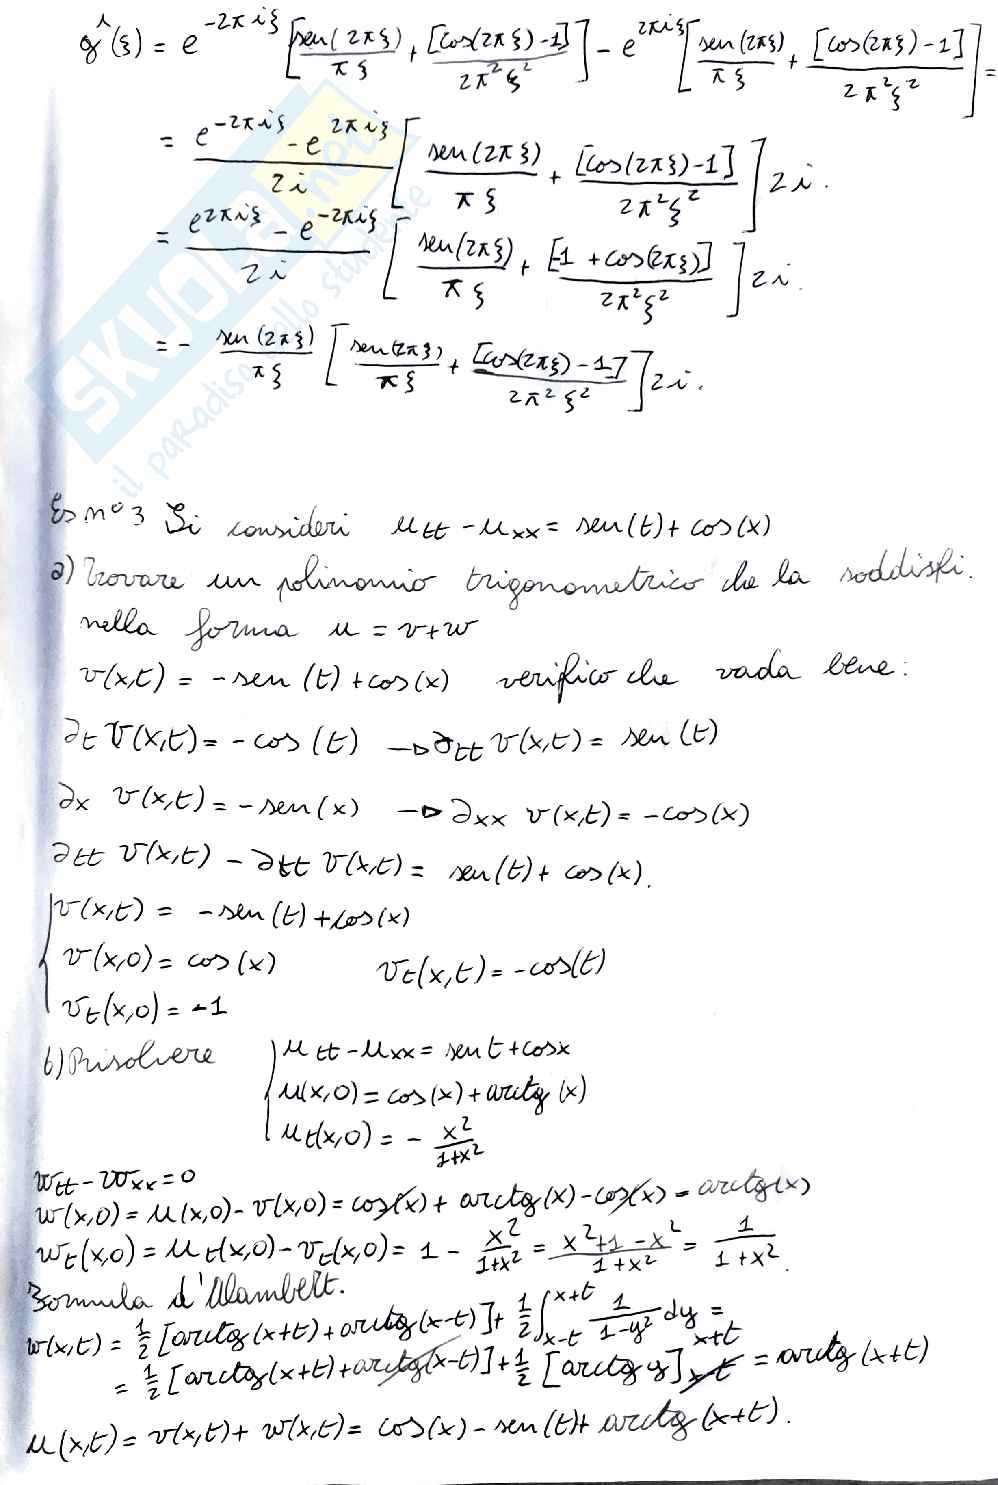 ĝ(ξ) = e^{-2πiξ} [sen(2πξ)/πξ + [cos(2πξ)-1]/2π²ξ²] - e^{2πiξ} [sen(2πξ)/πξ + [cos(2πξ)-1]/2π²ξ²] =
= (e^{-2πiξ} - e^{2πiξ})/2i [sen(2πξ)/πξ + [cos(2πξ)-1]/2π²ξ²] 2i.
= (e^{2πiξ} - e^{-2πiξ})/2i [sen(2πξ)/πξ + [-1 + cos(2πξ)]/2π²ξ²] 2i.
= - sen(2πξ)/πξ [sen(2πξ)/πξ + [cos(2πξ)-1]/2π²ξ²] 2i.
SKUOLA.net
il paradiso dello studente
Es n° 3 Si consideri u_tt - u_xx = sen(t) + cos(x)
a) Trovare un polinomio trigonometrico che la soddisfi.
nella forma u = v+w
v(x,t) = -sen(t) + cos(x) verifico che vada bene:
∂_t v(x,t) = -cos(t) → ∂_tt v(x,t) = sen(t)
∂_x v(x,t) = -sen(x) → ∂_xx v(x,t) = -cos(x)
∂_tt v(x,t) - ∂_tt v(x,t) = sen(t) + cos(x).
v(x,t) = -sen(t) + cos(x)
v(x,0) = cos(x) v_t(x,t) = -cos(t)
v_t(x,0) = -1
b) Risolvere { u_tt - u_xx = sen t + cos x
u(x,0) = cos(x) + arctg(x)
u_t(x,0) = - x²/(1+x²)
w_tt - w_xx = 0
w(x,0) = u(x,0) - v(x,0) = cos(x) + arctg(x) - cos(x) = arctg(x)
w_t(x,0) = u_t(x,0) - v_t(x,0) = 1 - x²/(1+x²) = (x²+1-x²)/(1+x²) = 1/(1+x²).
Formula d'Alambert.
w(x,t) = 1/2 [arctg(x+t) + arctg(x-t)] + 1/2 ∫_{x-t}^{x+t} 1/(1-y²) dy =
= 1/2 [arctg(x+t) + arctg(x-t)] + 1/2 [arctg y]_{x-t}^{x+t} = arctg(x+t)
u(x,t) = v(x,t) + w(x,t) = cos(x) - sen(t) + arctg(x+t).